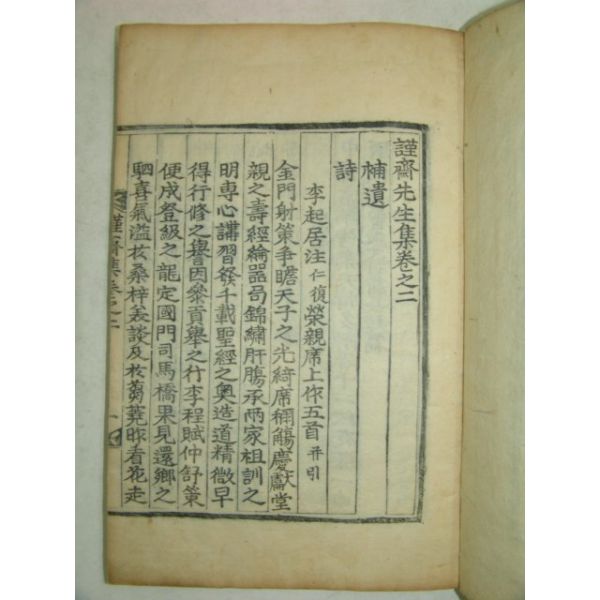 謹齋先生集卷之二
補遺
詩
李起居注仁復榮親席上作五首并引
金門射策爭瞻天子之光綺席稱觴慶獻堂
親之壽經綸器局錦繡肝膓承兩家祖訓之
明專心講習發千載聖經之奧造道精微早
得行修之譽因參貢擧之行李程賦仲舒策
便成登級之龍定國門司馬橋果見還鄕之
駟喜氣溢於桑梓美談及於蒭蕘昨看花走
謹齋集卷之二
一